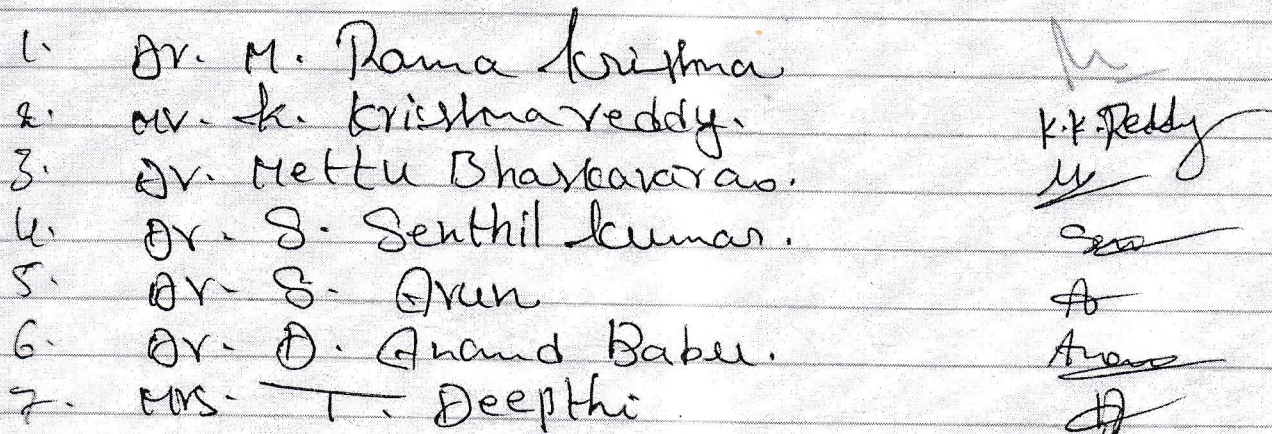 1. Dr. M. Rama Krishna
2. Mr. K. Krishnareddy. K.K.Reddy
3. Dr. Mettu Bhaskararao.
4. Dr. S. Senthil Kumar.
5. Dr. S. Arun
6. Dr. D. Anand Babu.
7. Mrs. T. Deepthi